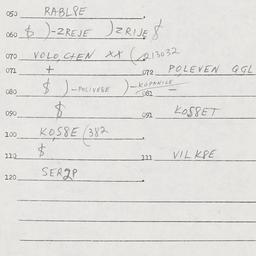 050 RABL8E
060 $ )-ZREJE )ZRIJE $
070 VOLO,CHEN XX (213032
071 + 072 POLEVEN GGL
080 $ )-POLIVE8E )-KOPANICE 081
090 $ 091 KO58ET
100 KO58E (382
110 $ 111 VILK8E
120 SER2P